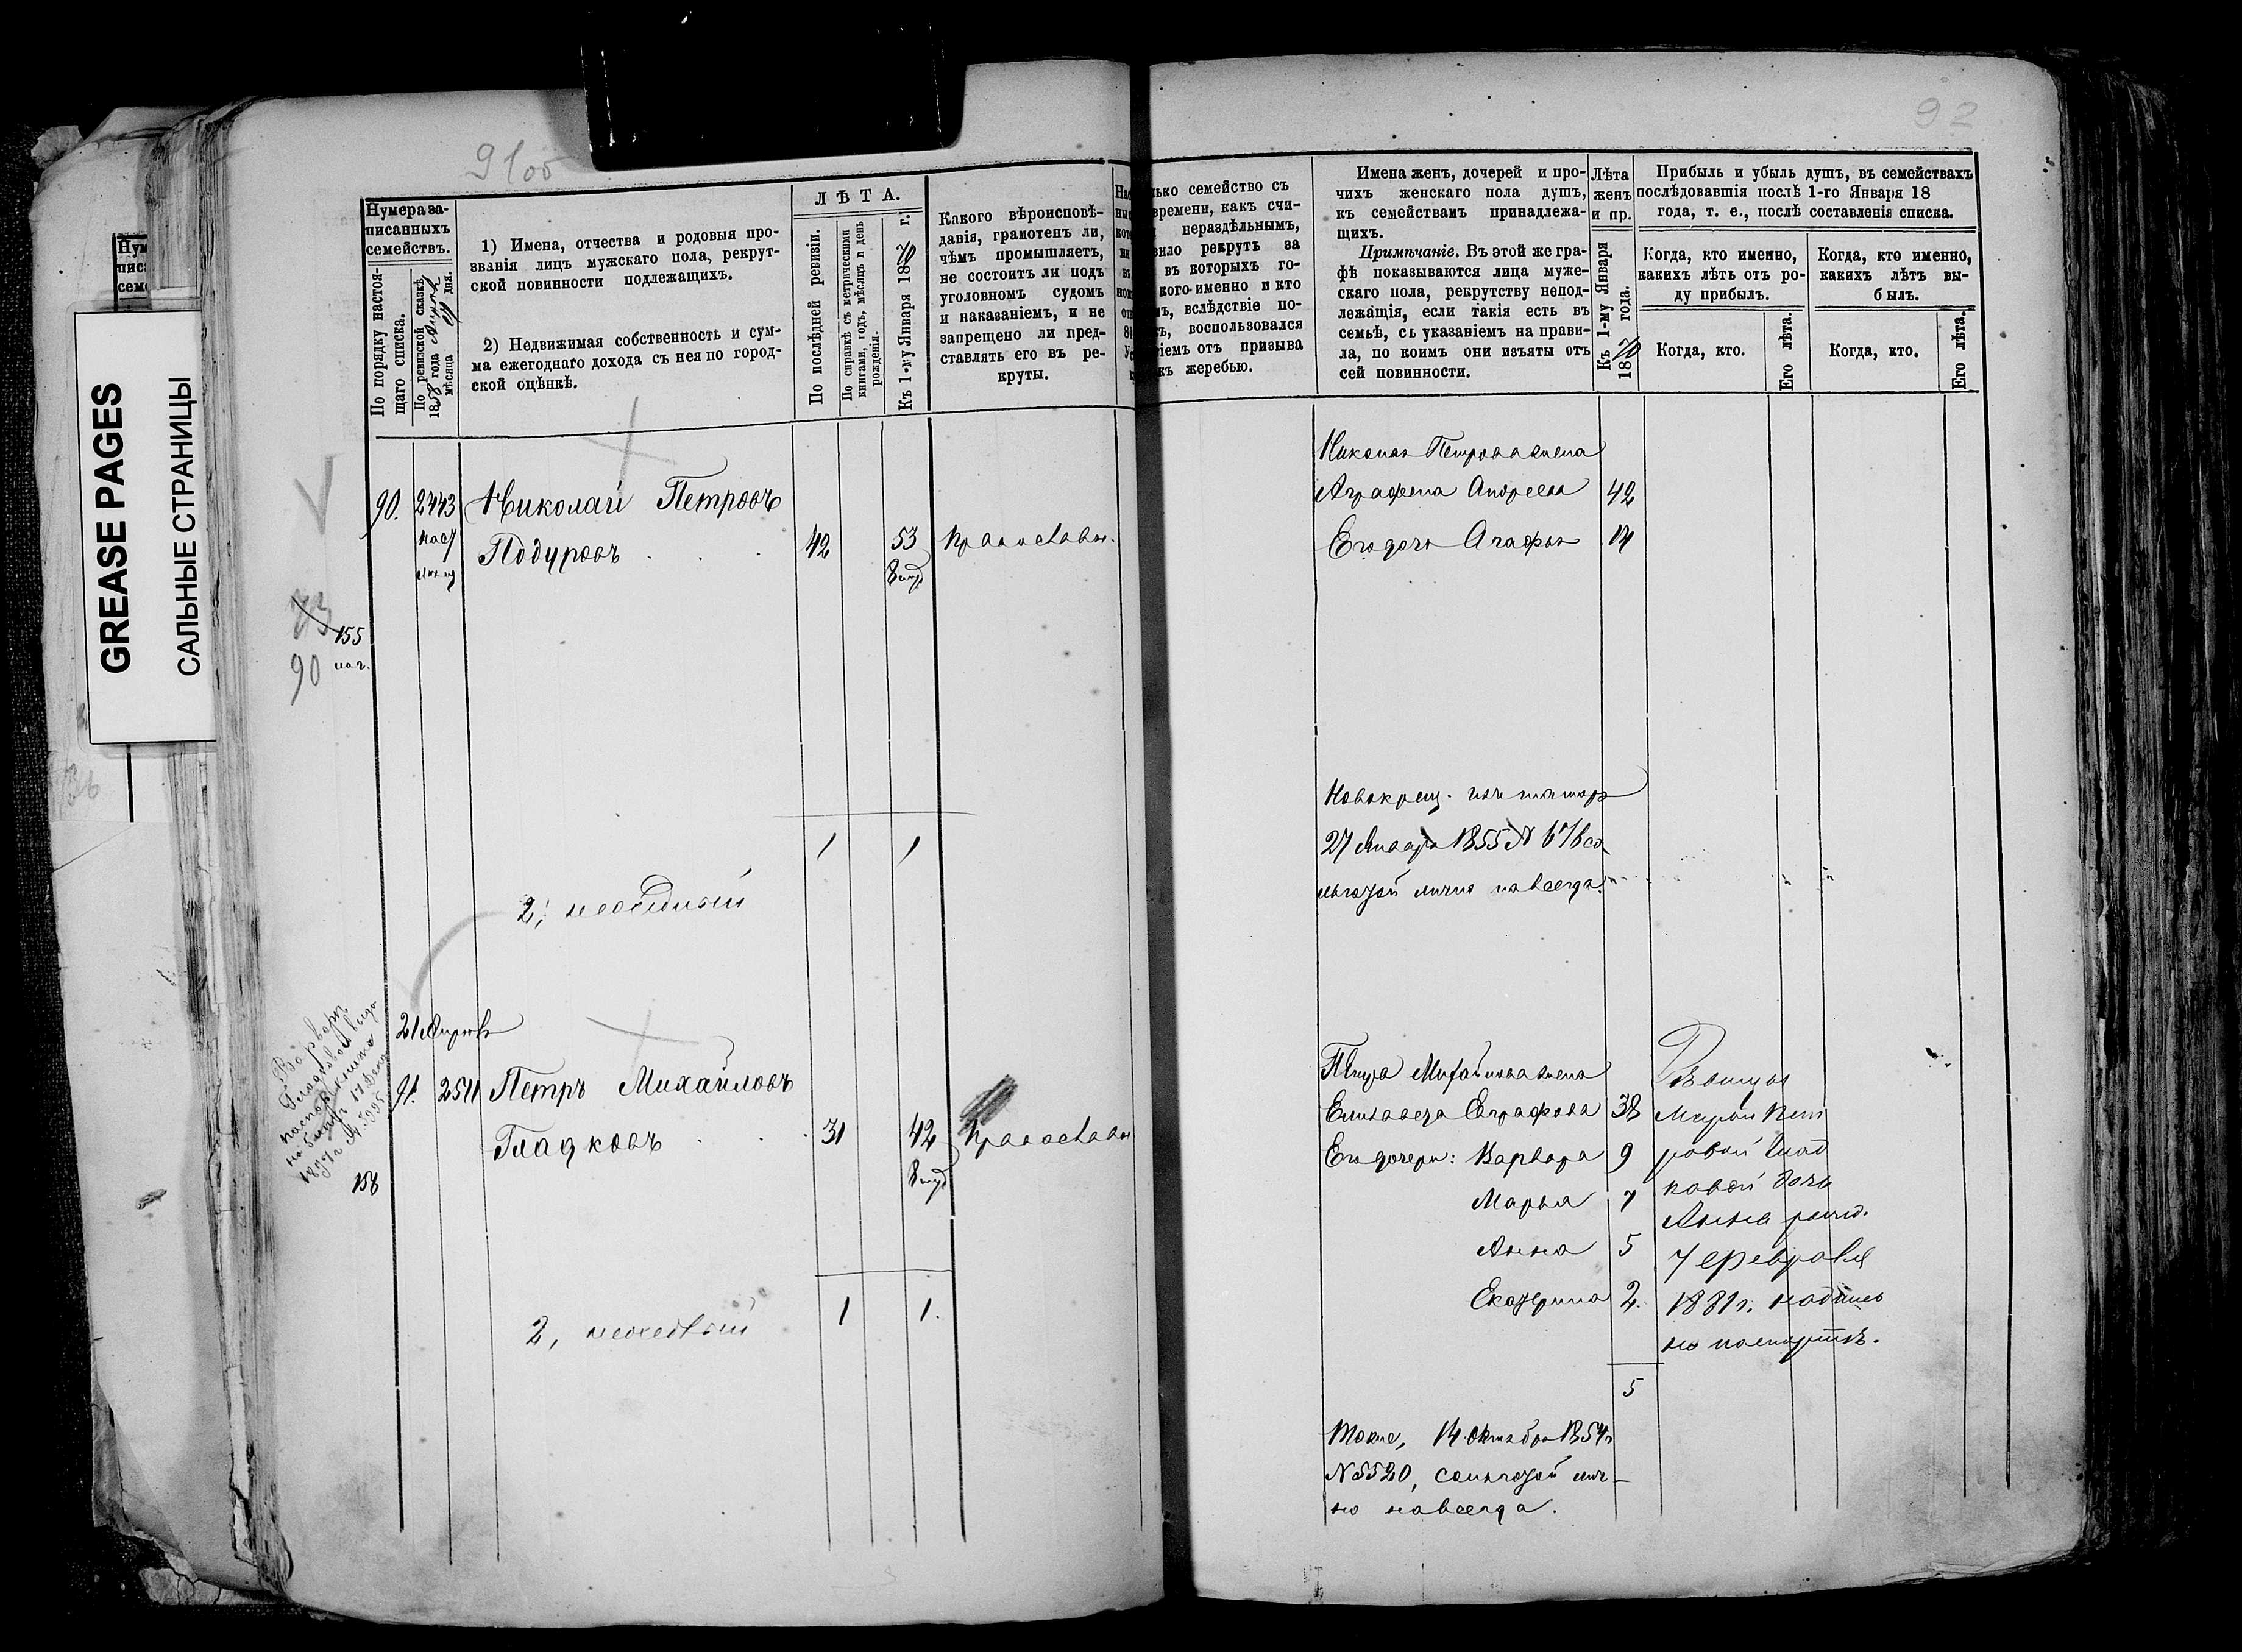 91 об
92
GREASE PAGES
САЛЬНЫЕ СТРАНИЦЫ
Нумера за-
писанныхъ
семействъ.
По порядку настоя-
щаго списка.
По ревизской сказкѣ
1858 года
мѣсяца дня.
1) Имена, отчества и родовыя про-
званія лицъ мужскаго пола, рекрут-
ской повинности подлежащихъ.
2) Недвижимая собственность и сум-
ма ежегоднаго дохода съ нея по город-
ской оцѣнкѣ.
ЛѢТА.
По послѣдней ревизіи.
По справкѣ съ метрическими
книгами, годъ, мѣсяцъ и день
рожденія.
Къ 1-му Января 1870 г.
Какого вѣроисповѣ-
данія, грамотенъ ли,
чѣмъ промышляетъ,
не состоитъ ли подъ
уголовномъ судомъ
и наказаніемъ, и не
запрещено ли пред-
ставлять его въ ре-
круты.
семейство съ
времени, какъ счи-
нераздѣльнымъ,
рекрутъ за
въ которыхъ го-
кого-именно и кто
вслѣдствіе по-
воспользовался
отъ призыва
къ жеребью.
Имена женъ, дочерей и про-
чихъ женскаго пола душъ,
къ семействамъ принадлежа-
щихъ.
Примѣчаніе. Въ этой же гра-
фѣ показываются лица муже-
скаго пола, рекрутству непод-
лежащія, если такія есть въ
семьѣ, съ указаніемъ на прави-
ла, по коимъ они изъяты отъ
сей повинности.
Лѣта
женъ
и пр.
Къ 1-му Января
1870 года.
Прибыль и убыль душъ, въ семействахъ
послѣдовавшія послѣ 1-го Января 18
года, т. е., послѣ составленія списка.
Когда, кто именно,
какихъ лѣтъ отъ ро-
ду прибылъ.
Когда, кто именно,
какихъ лѣтъ вы-
былъ.
Когда, кто.
Его лѣта.
Когда, кто.
Его лѣта.
90. 2443 Николай Петровъ
Подуровъ 42 53 Православн.
155
90
1 1
2,
Николая Петрова жена
Аграфена Андреева 42
Его дочь Агафья 14
Новокрещ. изъ татаръ
27 Января 1855 №
лично навсегда.
91. 2511 Петръ Михайловъ
Гладковъ 31 42 Православн
156
1 1.
2,
Петра Михайлова жена
Елизавета Евграфова 38
Его дочери: Варвара 9
Марья 7
Анна 5
Екатерина 2.
5
Тоже, 14 Октября 1854 г
№ 5520, лич-
но навсегда.
дочь
Анна рожд.
7 Февраля
1881 г. надпись
на паспортѣ.